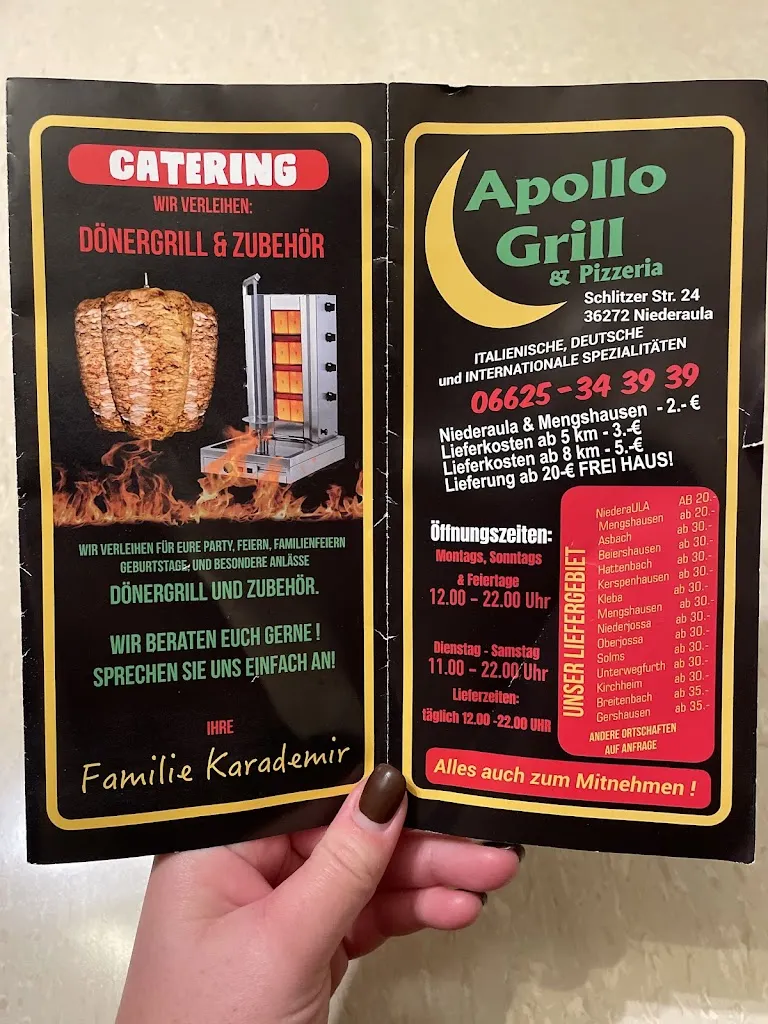 CATERING
WIR VERLEIHEN:
DÖNERGRILL & ZUBEHÖR
WIR VERLEIHEN FÜR EURE PARTY, FEIERN, FAMILIENFEIERN
GEBURTSTAGE, UND BESONDERE ANLÄSSE
DÖNERGRILL UND ZUBEHÖR.
WIR BERATEN EUCH GERNE !
SPRECHEN SIE UNS EINFACH AN!
IHRE
Familie Karademir
Apollo
Grill
& Pizzeria
Schlitzer Str. 24
36272 Niederaula
ITALIENISCHE, DEUTSCHE
und INTERNATIONALE SPEZIALITÄTEN
06625 - 34 39 39
Niederaula & Mengshausen - 2.- €
Lieferkosten ab 5 km - 3.-€
Lieferkosten ab 8 km - 5.-€
Lieferung ab 20-€ FREI HAUS!
Öffnungszeiten:
Montags, Sonntags
& Feiertage
12.00 - 22.00 Uhr
Dienstag - Samstag
11.00 - 22.00 Uhr
Lieferzeiten:
täglich 12.00 -22.00 UHR
UNSER LIEFERGEBIET
NiederaULA AB 20.-
Mengshausen ab 20.-
Asbach ab 30.-
Beiershausen ab 30.-
Hattenbach ab 30.-
Kerspenhausen ab 30.-
Kleba ab 30.-
Mengshausen ab 30.-
Niederjossa ab 30.-
Oberjossa ab 30.-
Solms ab 30.-
Unterwegfurth ab 30.-
Kirchheim ab 30.-
Breitenbach ab 35.-
Gershausen ab 35.-
ANDERE ORTSCHAFTEN
AUF ANFRAGE
Alles auch zum Mitnehmen !